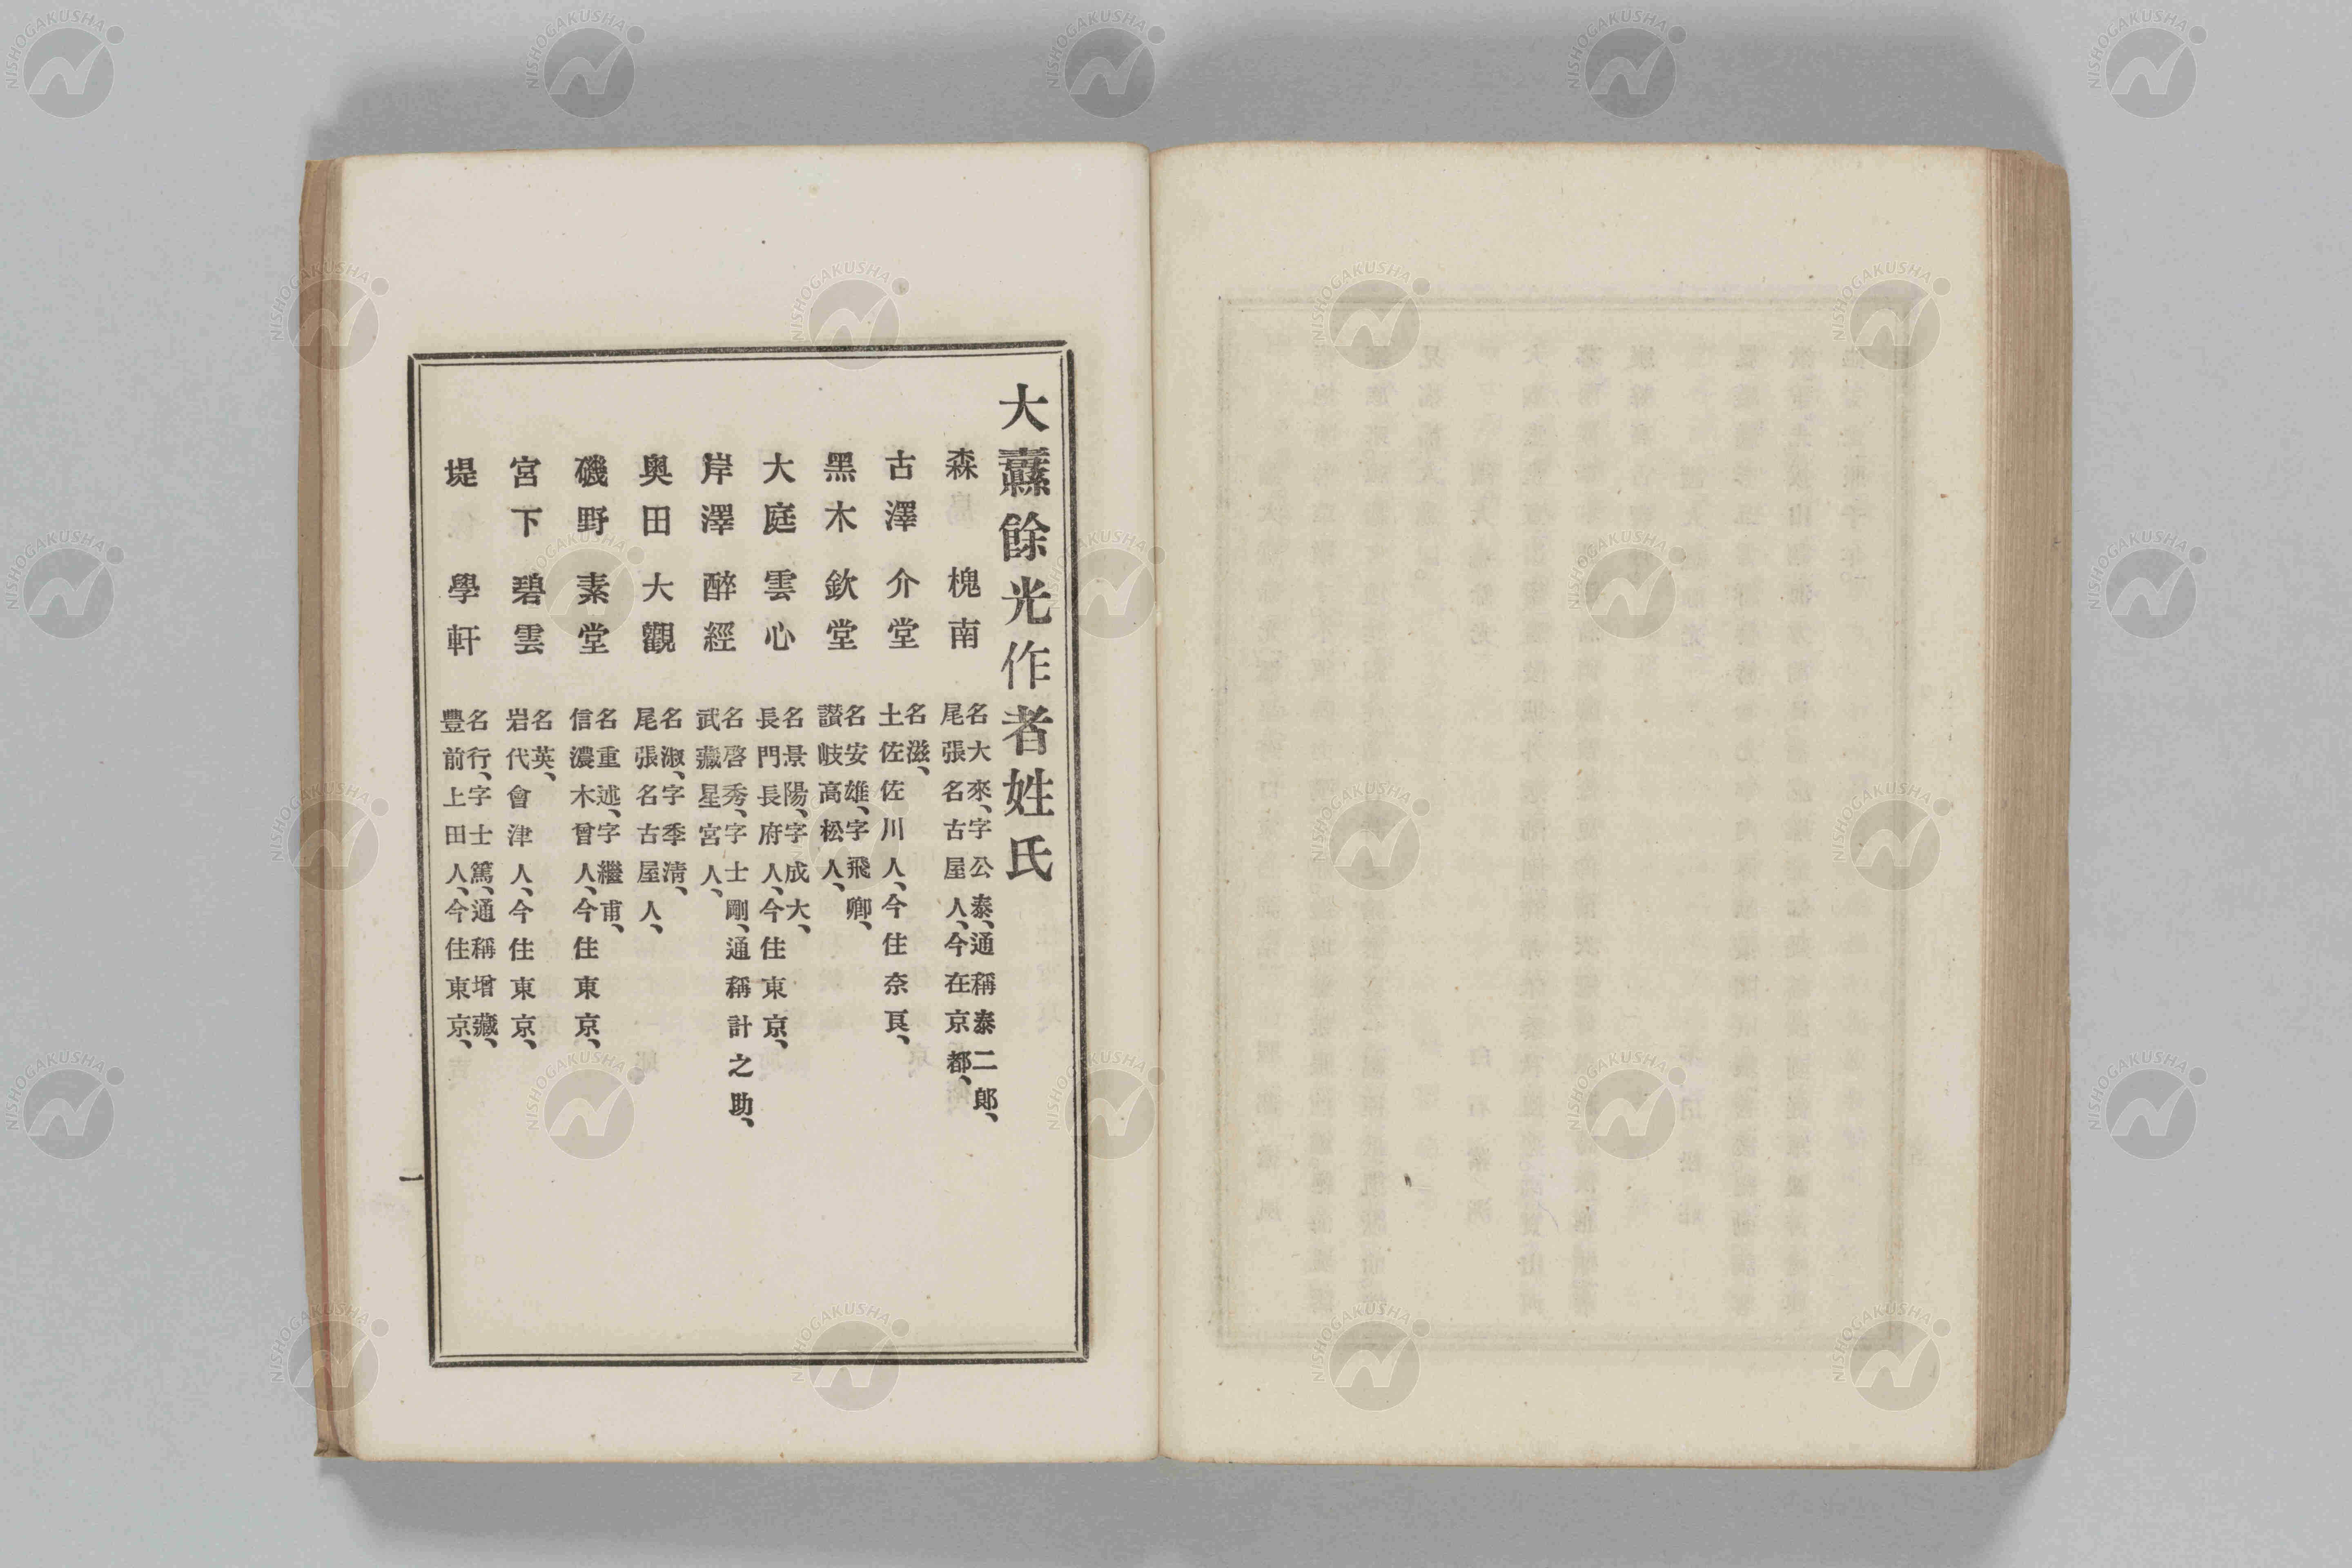 大纛餘光作者姓氏
森 槐南 名大來、字公泰、通稱泰二郞、
尾張名古屋人、今在京都、
古澤介堂 名滋、
土佐佐川人、今住奈良、
黑木欽堂 名安雄、字飛卿、
讚岐高松人、
大庭雲心 名景陽、字成大、
長門長府人、今住東京、
岸澤醉經 名啓秀、字士剛、通稱計之助、
武藏星宮人、
奧田大觀 名淑、字季淸、
尾張名古屋人、
磯野素堂 名重述、字繼甫、
信濃木曾人、今住東京、
宮下碧雲 名英、
岩代會津人、今住東京、
堤 學軒 名行、字士篤、通稱增藏、
豐前上田人、今住東京、
一
NISHOGAKUSHA